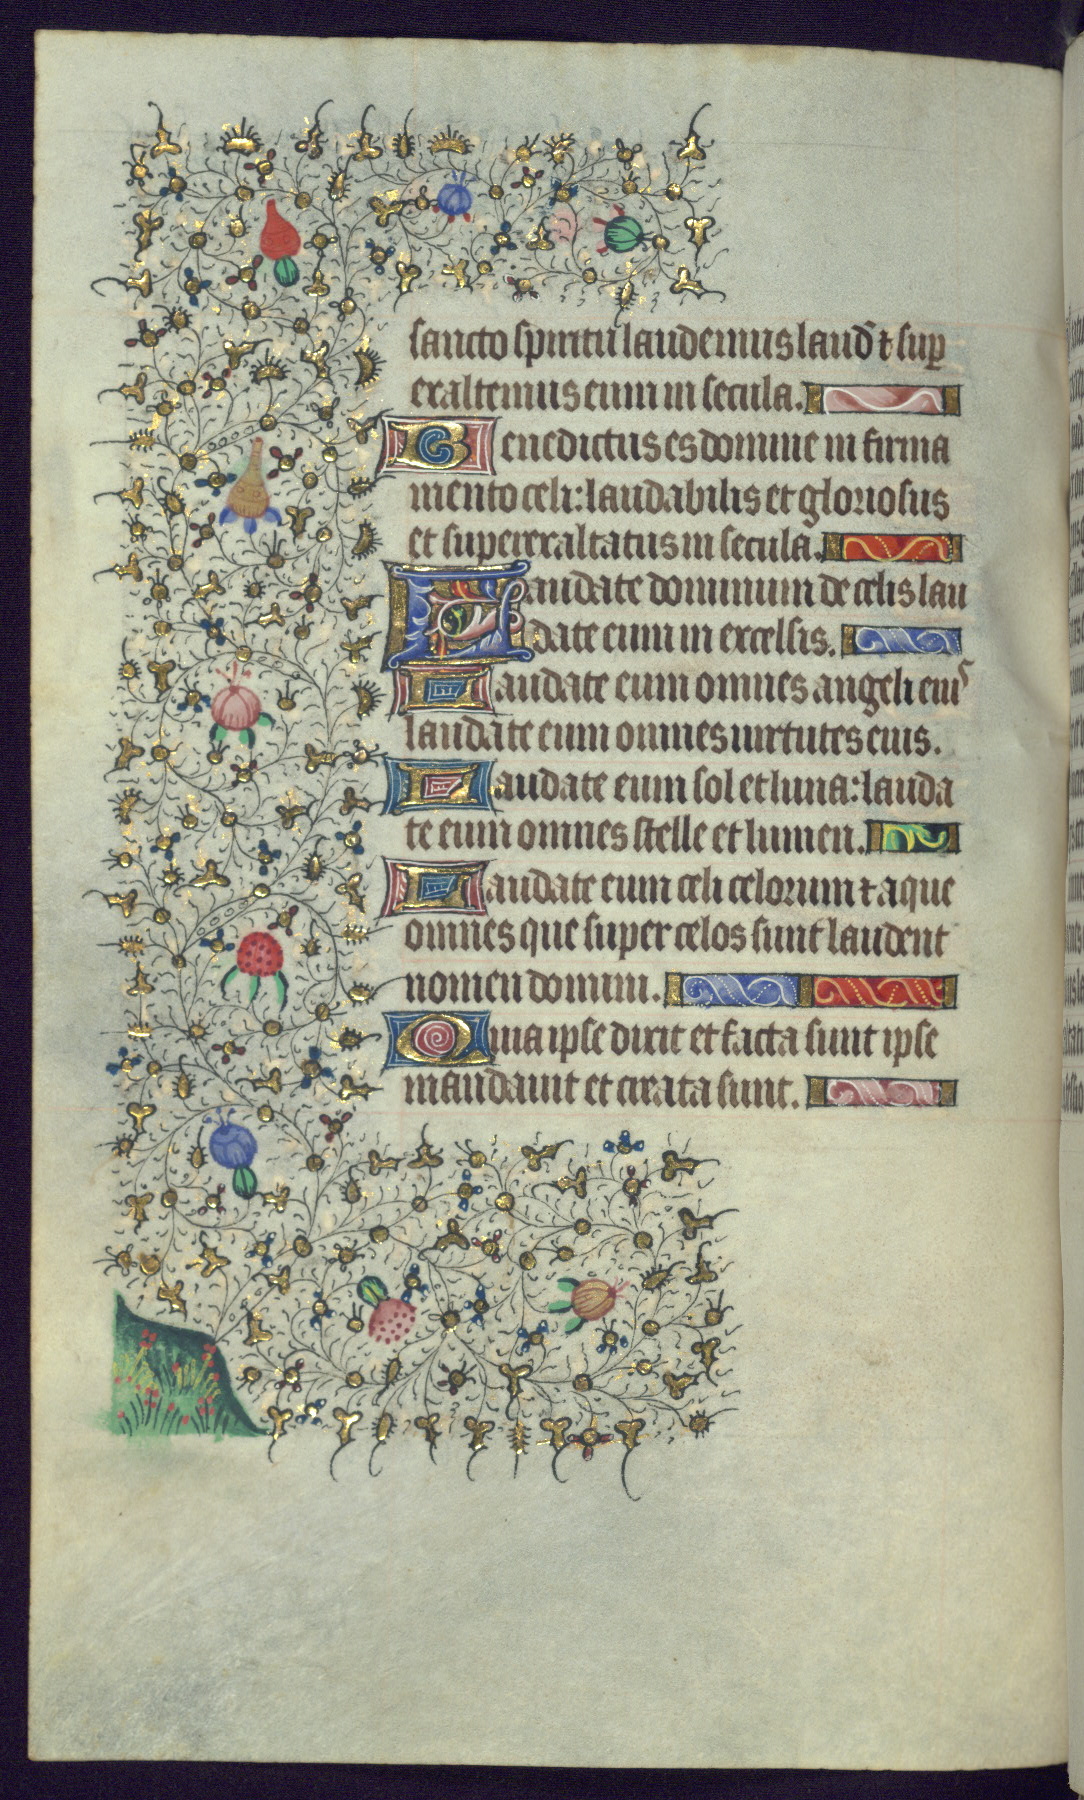 sancto spiritu laudemus laud̄ ⁊ sup
exaltemus eum in secula.
Benedictus es domine in firma
mento celi: laudabilis et gloriosus
et superexaltatus in secula.
Laudate dominum de celis lau
date eum in excelsis.
Laudate eum omnes angeli eiuˢ
laudate eum omnes uirtutes eius.
Laudate eum sol et luna: lauda
te eum omnes stelle et lumen.
Laudate eum celi celorum ⁊ aque
omnes que super celos sunt laudent
nomen domini.
Quia ipse dixit et facta sunt ipse
mandauit et creata sunt.